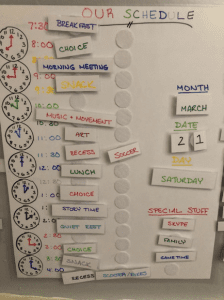 OUR SCHEDULE
7:30 BREAKFAST
8:00 CHOICE
MORNING MEETING
9:00 SNACK
10:00
MUSIC + MOVEMENT
11:00 ART
RECESS SOCCER
12:00 LUNCH
1:00 CHOICE
STORY TIME
2:00 QUIET REST
CHOICE
3:00 SNACK
4:00 RECESS
MONTH
MARCH
DATE
2 1
DAY
SATURDAY
SPECIAL STUFF
SKYPE
FAMILY
GAME TIME